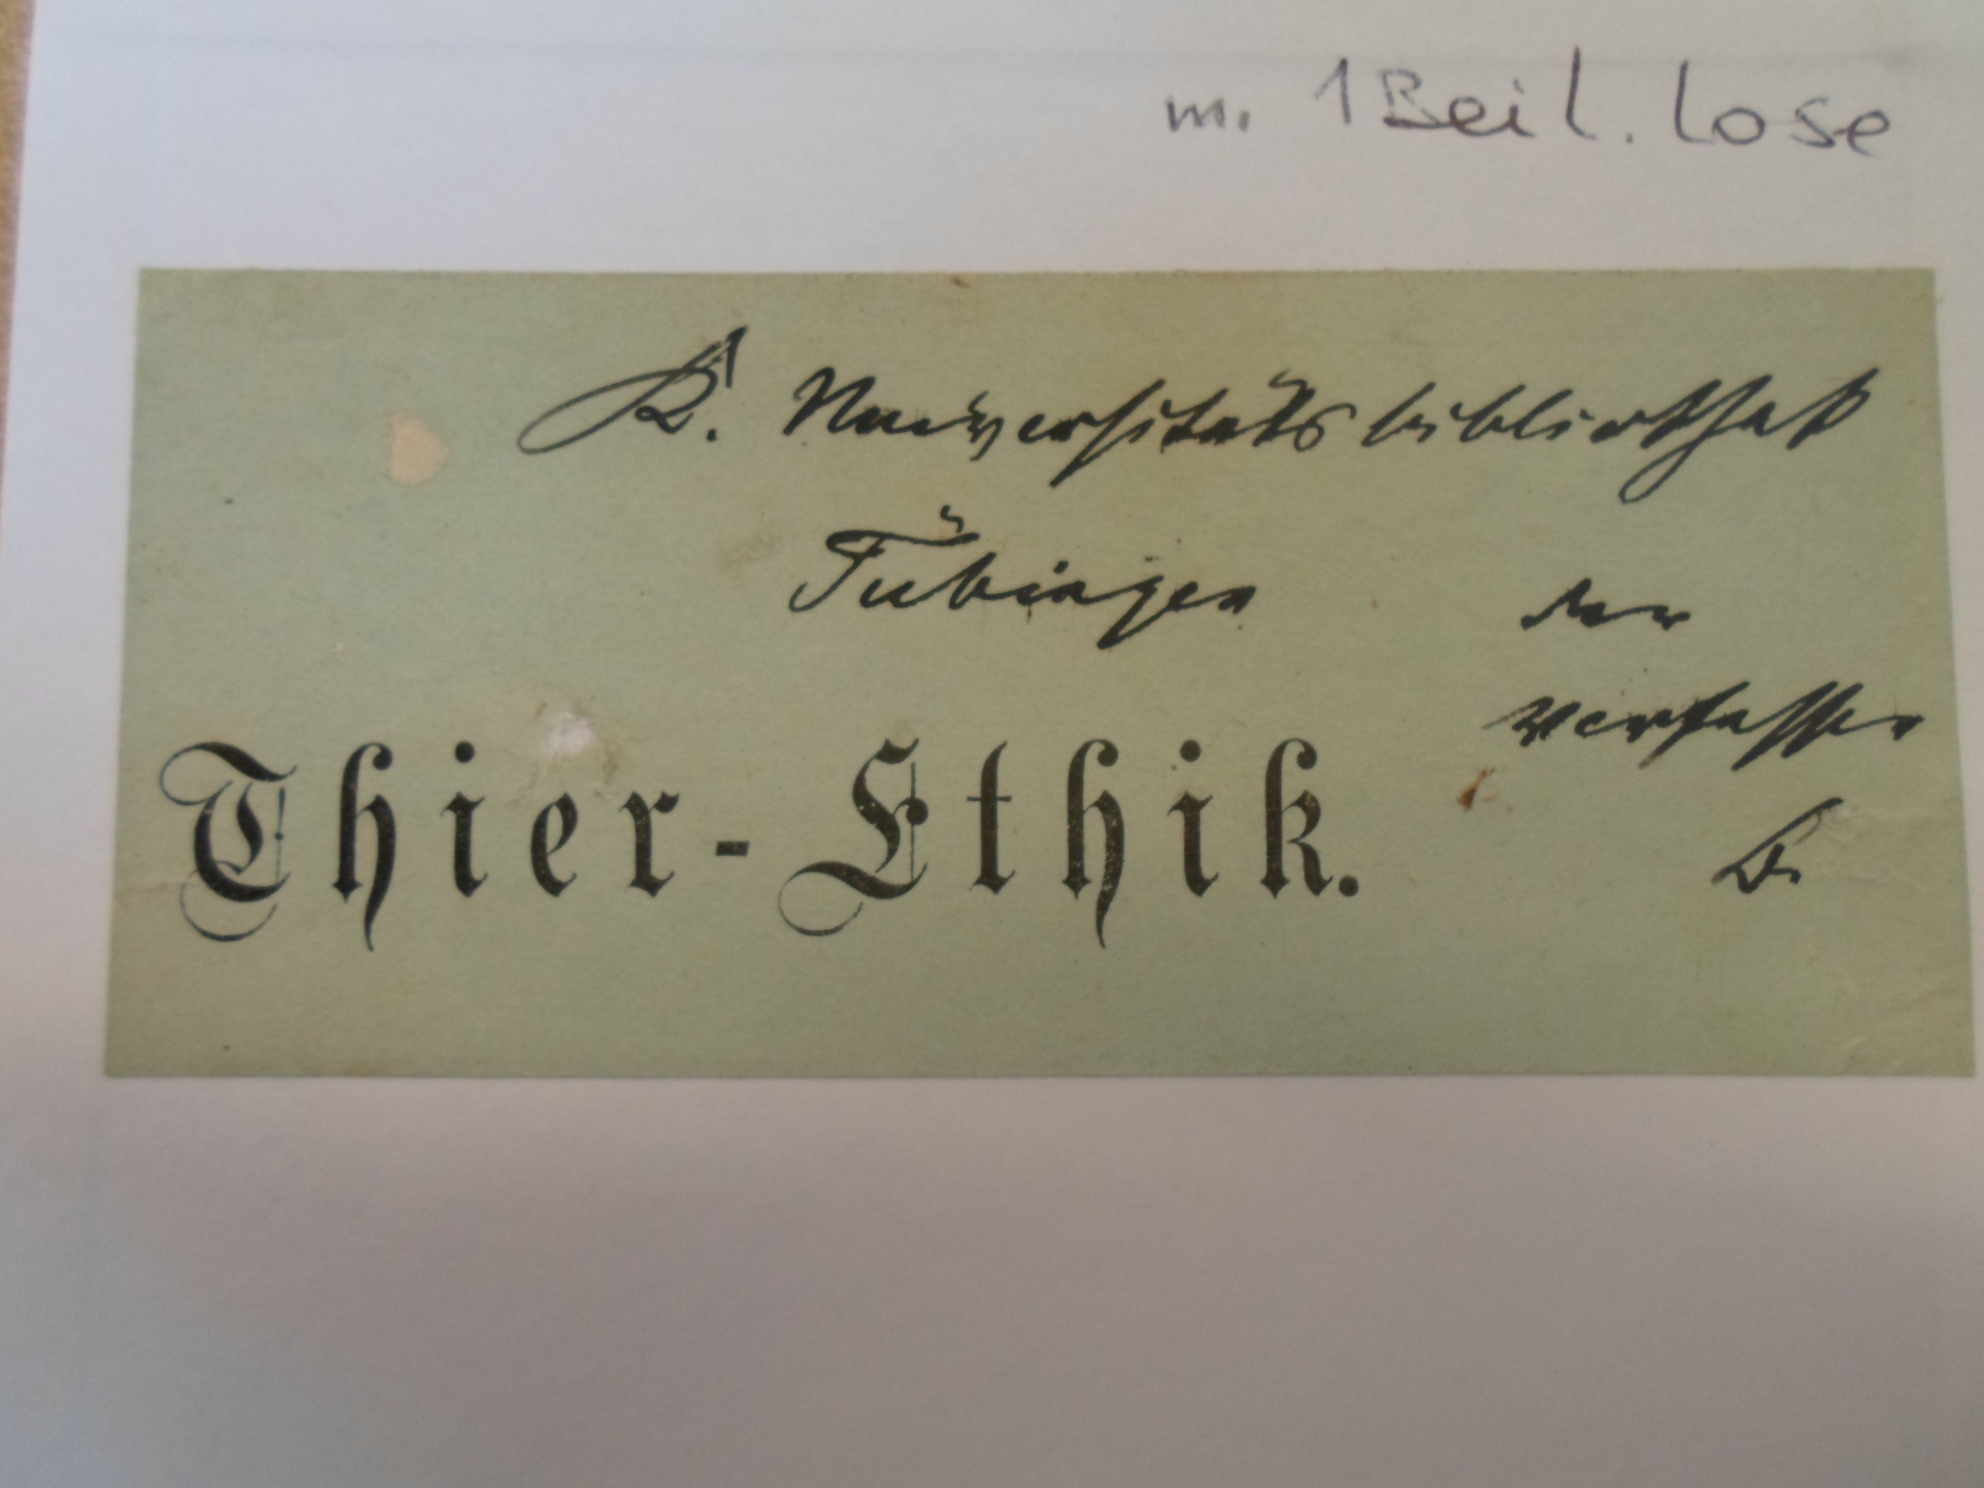 m. 1 Beil. lose
K. Universitätsbibliothek
Tübingen der
Verfasser
Thier-Ethik.